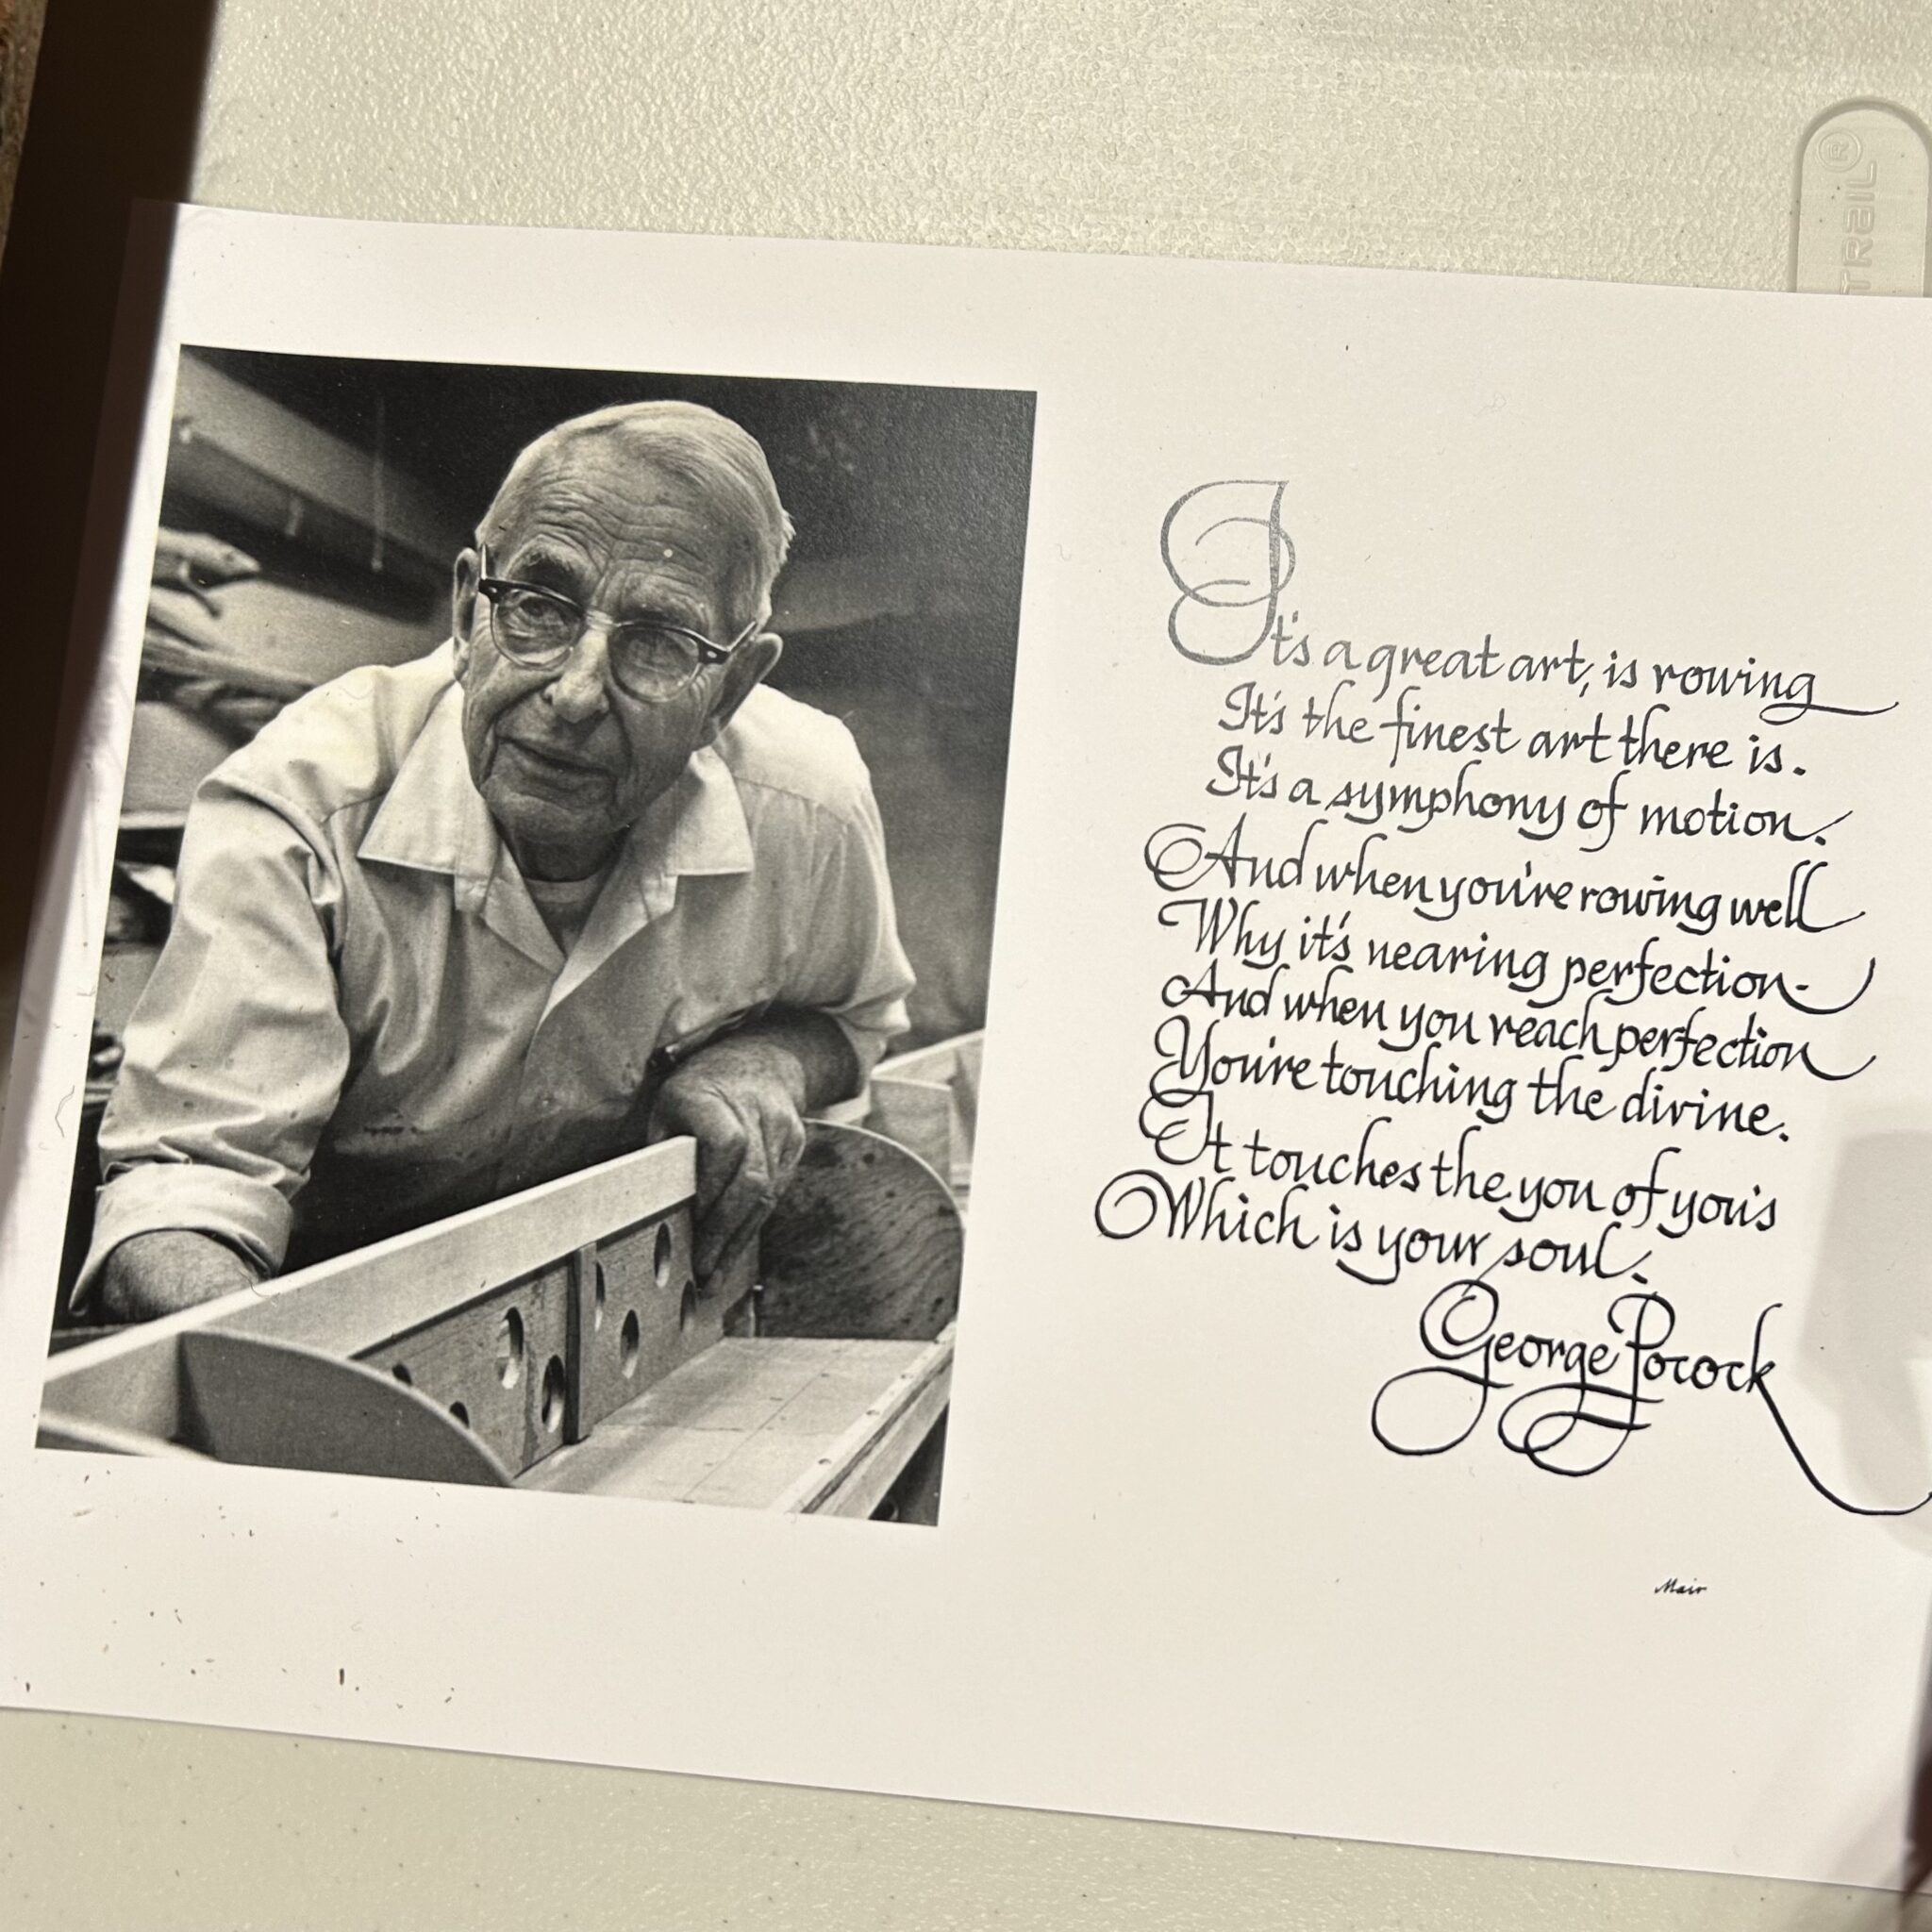 TRAIL®
It's a great art, is rowing
It's the finest art there is.
It's a symphony of motion.
And when you're rowing well
Why it's nearing perfection-
And when you reach perfection
You're touching the divine.
It touches the you of you's
Which is your soul.
George Pocock
Mair